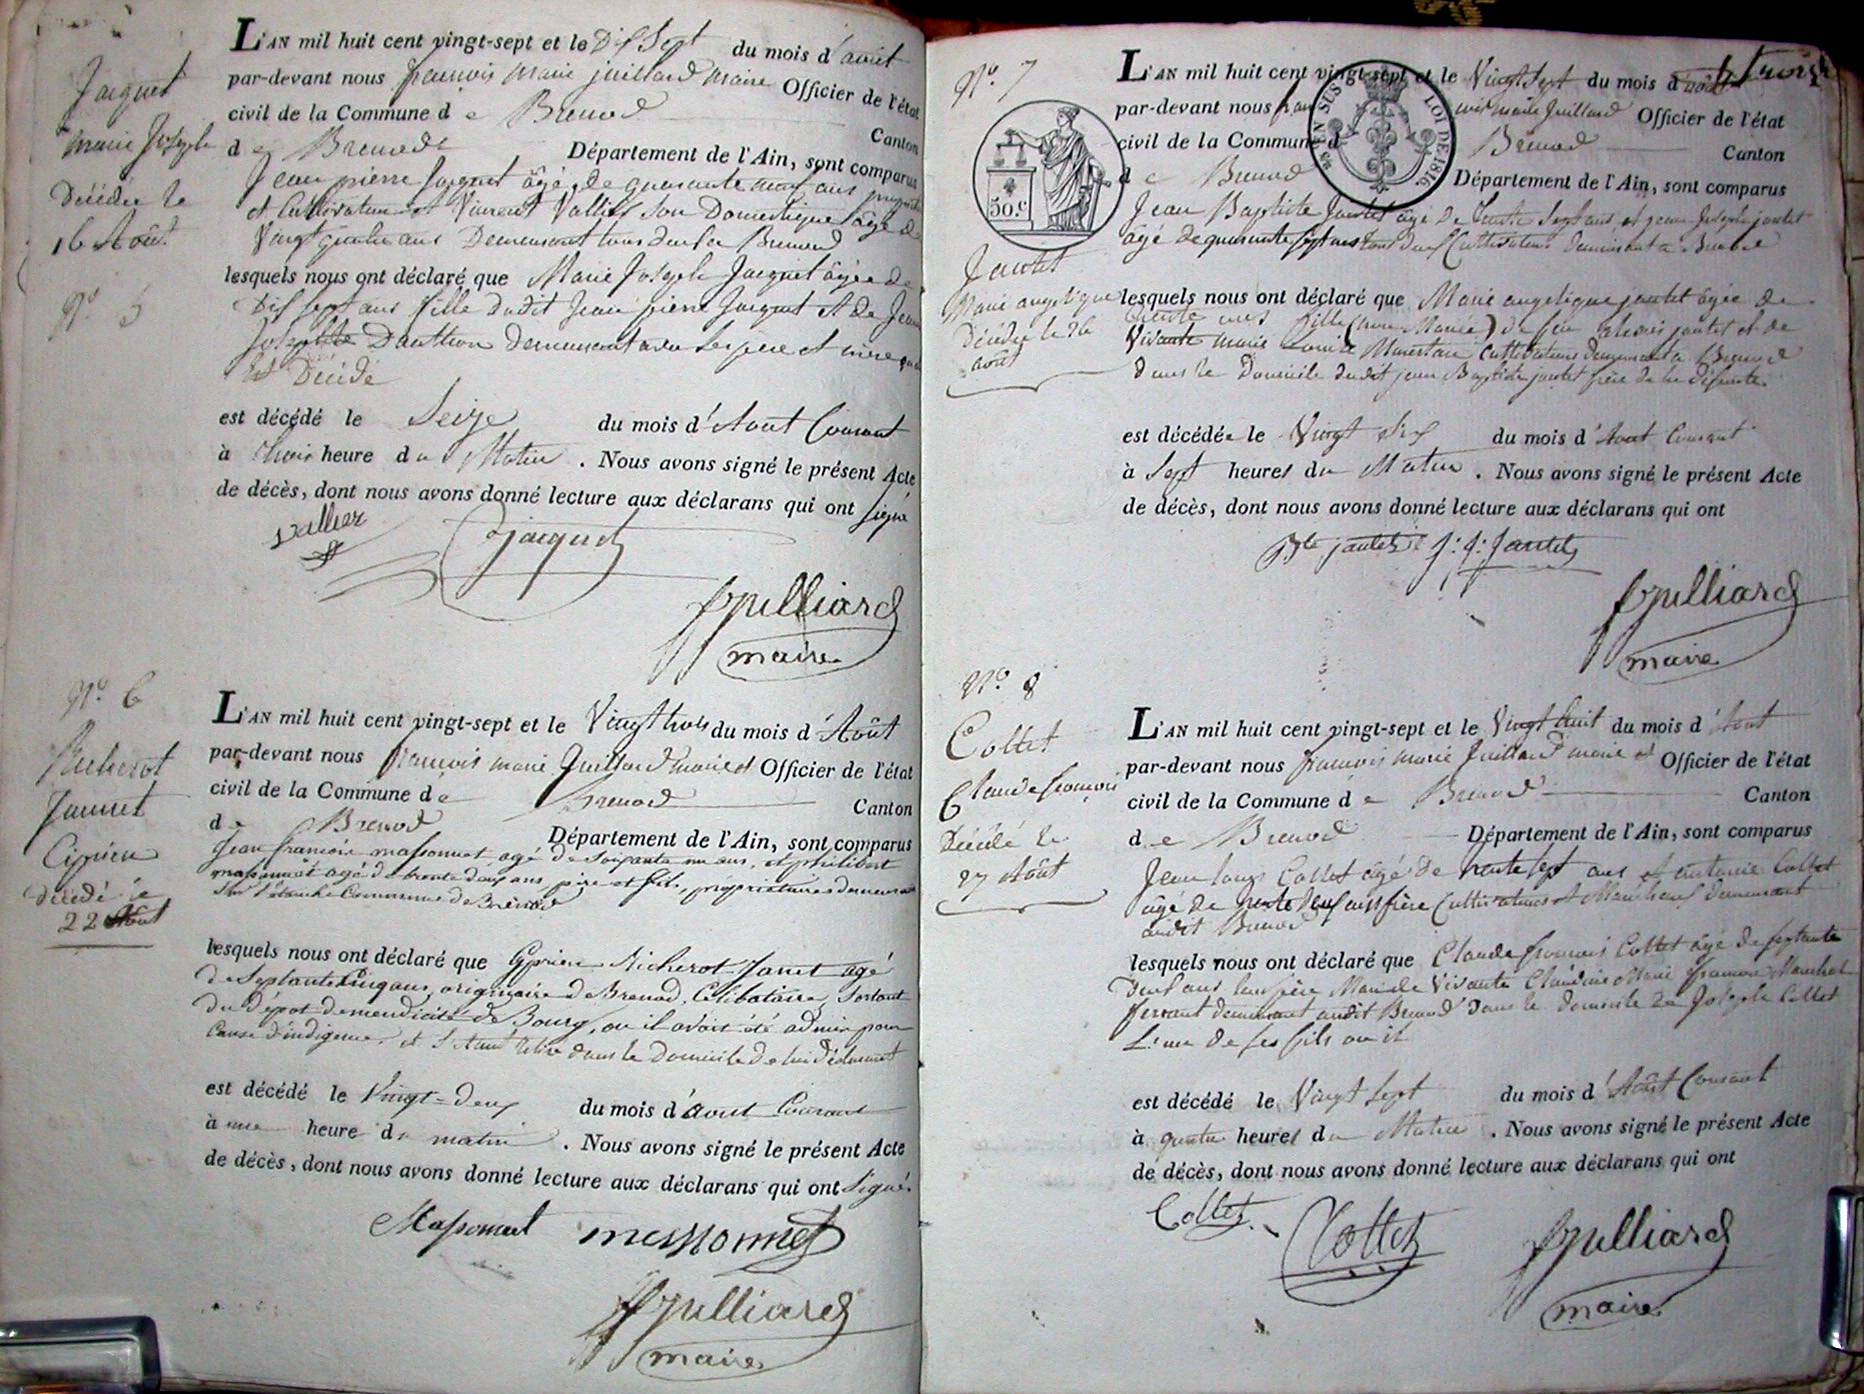 Jacquet
Marie Josephe
Décédée le
16 Août
N.º 5
L'AN mil huit cent vingt-sept et le Dix Sept du mois d'août
par-devant nous françois marie juilliard maire Officier de l'état
civil de la Commune de Brenod Canton
de Brenod Département de l'Ain, sont comparus
Jean pierre Jacquet âgé de quarante neuf ans
et Cultivateur et Vincent Vallier son Domestique âgé de
Vingt quatre ans Demeurant tous deux a Brenod
lesquels nous ont déclaré que Marie Josephe Jacquet âgée de
Dix sept ans fille dudit Jean pierre Jacquet et de Jeanne
Josephte Demeurant avec ses père et mère
est Décédé
est décédé le Seize du mois d'Aout Courant
à trois heure du Matin. Nous avons signé le présent Acte
de décès, dont nous avons donné lecture aux déclarans qui ont signé
Vallier Jacquet
Juilliard
maire
N.º 6
Richerot
Jannet
Ciprien
décédé le
22 Août
L'AN mil huit cent vingt-sept et le Vingt trois du mois d'Août
par-devant nous françois marie Juilliard maire et Officier de l'état
civil de la Commune de Brenod Canton
de Brenod Département de l'Ain, sont comparus
Jean françois massonnet, agé de soixante un ans, et philibert
massonnet agé de trente deux ans, père et fils, propriétaires demeurant
Sur l'étanche Commune de Brénod
lesquels nous ont déclaré que Cyprien Richerot Janet agé
de Septante Cinq ans, originaire de Brenod, Célibataire, Sortant
du dépot de mendicité de Bourg, ou il avoit été admis pour
Cause d'indigence, et s'étant retiré dans le Domicile de lui déclarant
est décédé le Vingt-deux du mois d'aout Courant
à une heure du matin. Nous avons signé le présent Acte
de décès, dont nous avons donné lecture aux déclarans qui ont signé
Massonnet massonnet
Juilliard
maire
N.º 7
50.c
TIMBRE
LOI DE 1816.
Jantet
Marie angelique
Décédée le 26
août
L'AN mil huit cent vingt-sept et le Vingt Sept du mois d'août
par-devant nous françois marie Juilliard Officier de l'état
civil de la Commune de Brenod Canton
de Brenod Département de l'Ain, sont comparus
Jean Baptiste Jantet âgé de Trente Sept ans, et jean Joseph jantet
âgé de quarante sept ans tous deux Cultivateurs demeurant a Brenod
lesquels nous ont déclaré que Marie angelique jantet âgée de
Trente ans fille (non Mariée) de feu alexis jantet et de
Vivante marie cultivateurs demeurant a Brenod
dans le Domicile dudit jean Baptiste jantet frère de la défunte
est décédée le Vingt Six du mois d'Aout Courant
à Sept heures du Matin. Nous avons signé le présent Acte
de décès, dont nous avons donné lecture aux déclarans qui ont
Bte jantet J: J: Jantet
Juilliard
maire
N.º 8
Collet
Claude françois
Décédé le
27 Août
L'AN mil huit cent vingt-sept et le Vingt huit du mois d'Aout
par-devant nous françois marie Juilliard maire et Officier de l'état
civil de la Commune de Brenod Canton
de Brenod Département de l'Ain, sont comparus
Jean louis Collet âgé de trente sept ans et antoine Collet
âgé de trente deux ans frère Cultivateurs et Maréchaux demeurant
audit Brenod
lesquels nous ont déclaré que Claude françois Collet âgé de septante
Deux ans leur père Mari de Vivante Claudine Marie Maréchal
ferrant demeurant audit Brenod dans le domicile de Joseph Collet
L'un de ses fils ou il
est décédé le Vingt Sept du mois d'Août Courant
à quatre heures du Matin. Nous avons signé le présent Acte
de décès, dont nous avons donné lecture aux déclarans qui ont
Collet Collet
Juilliard
maire